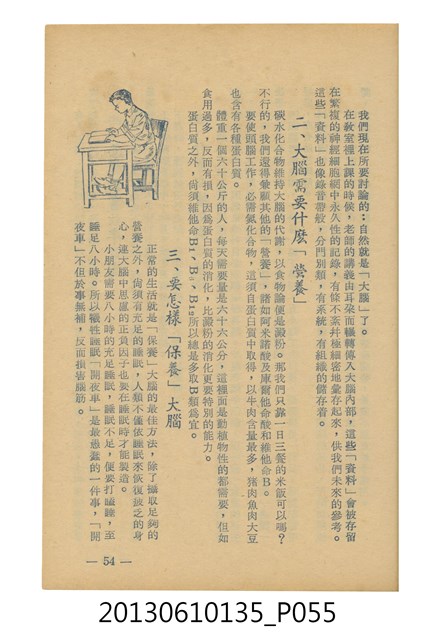 我們現在所要討論的：自然就是「大腦」了。
在教室裡上課的時候，老師的講義由耳朶而輾轉傳入大腦內部，這些「資料」會被存留
在繁複的神經細胞網中永久性的記錄，有條不紊井極細密地彙存起來，供我們未來的參考。
這些「資料」也像錄音帶般，分門別類，有系統，有組織的儲存着。
二、大腦需要什麽「營養」
碳水化合物維持大腦的代謝，以食物論便是澱粉。那我們只靠一日三餐的米飯可以嗎？
不行的，我們還得兼顧其他的「營養」，諸如阿米諾酸及庫爾他命酸和維他命B。
要使頭腦工作，必需氮化合物，這須自蛋白質中取得，以牛肉含量最多，豬肉魚肉大豆
也含有各種蛋白質。
體重一個六十公斤的人，每天需要量是六十六公分，這裡面是動植物性的都需要，但如
食用過多，反而有損，因爲蛋白質的消化，比澱粉的消化更要特別的能力。
蛋白質之外，尙須維他命B₁、B₂、B₁₂，所以總是多取B類爲宜。
三、要怎樣「保養」大腦
正常的生活就是「保養」大腦的最佳方法，除了攝取足夠的
營養之外，尙須有充足的睡眠，人類不僅依睡眠來恢復疲乏的身
心，連大腦中思慮的正負因子也要在睡眠時才能製造。
小朋友需要八小時的充足睡眠，睡眠不足，便要打瞌睡，至
睡足八小時。所以犧牲睡眠「開夜車」是最愚蠢的一件事，「開
夜車」不但於事無補，反而損害腦筋。
— 54 —
20130610135_P055